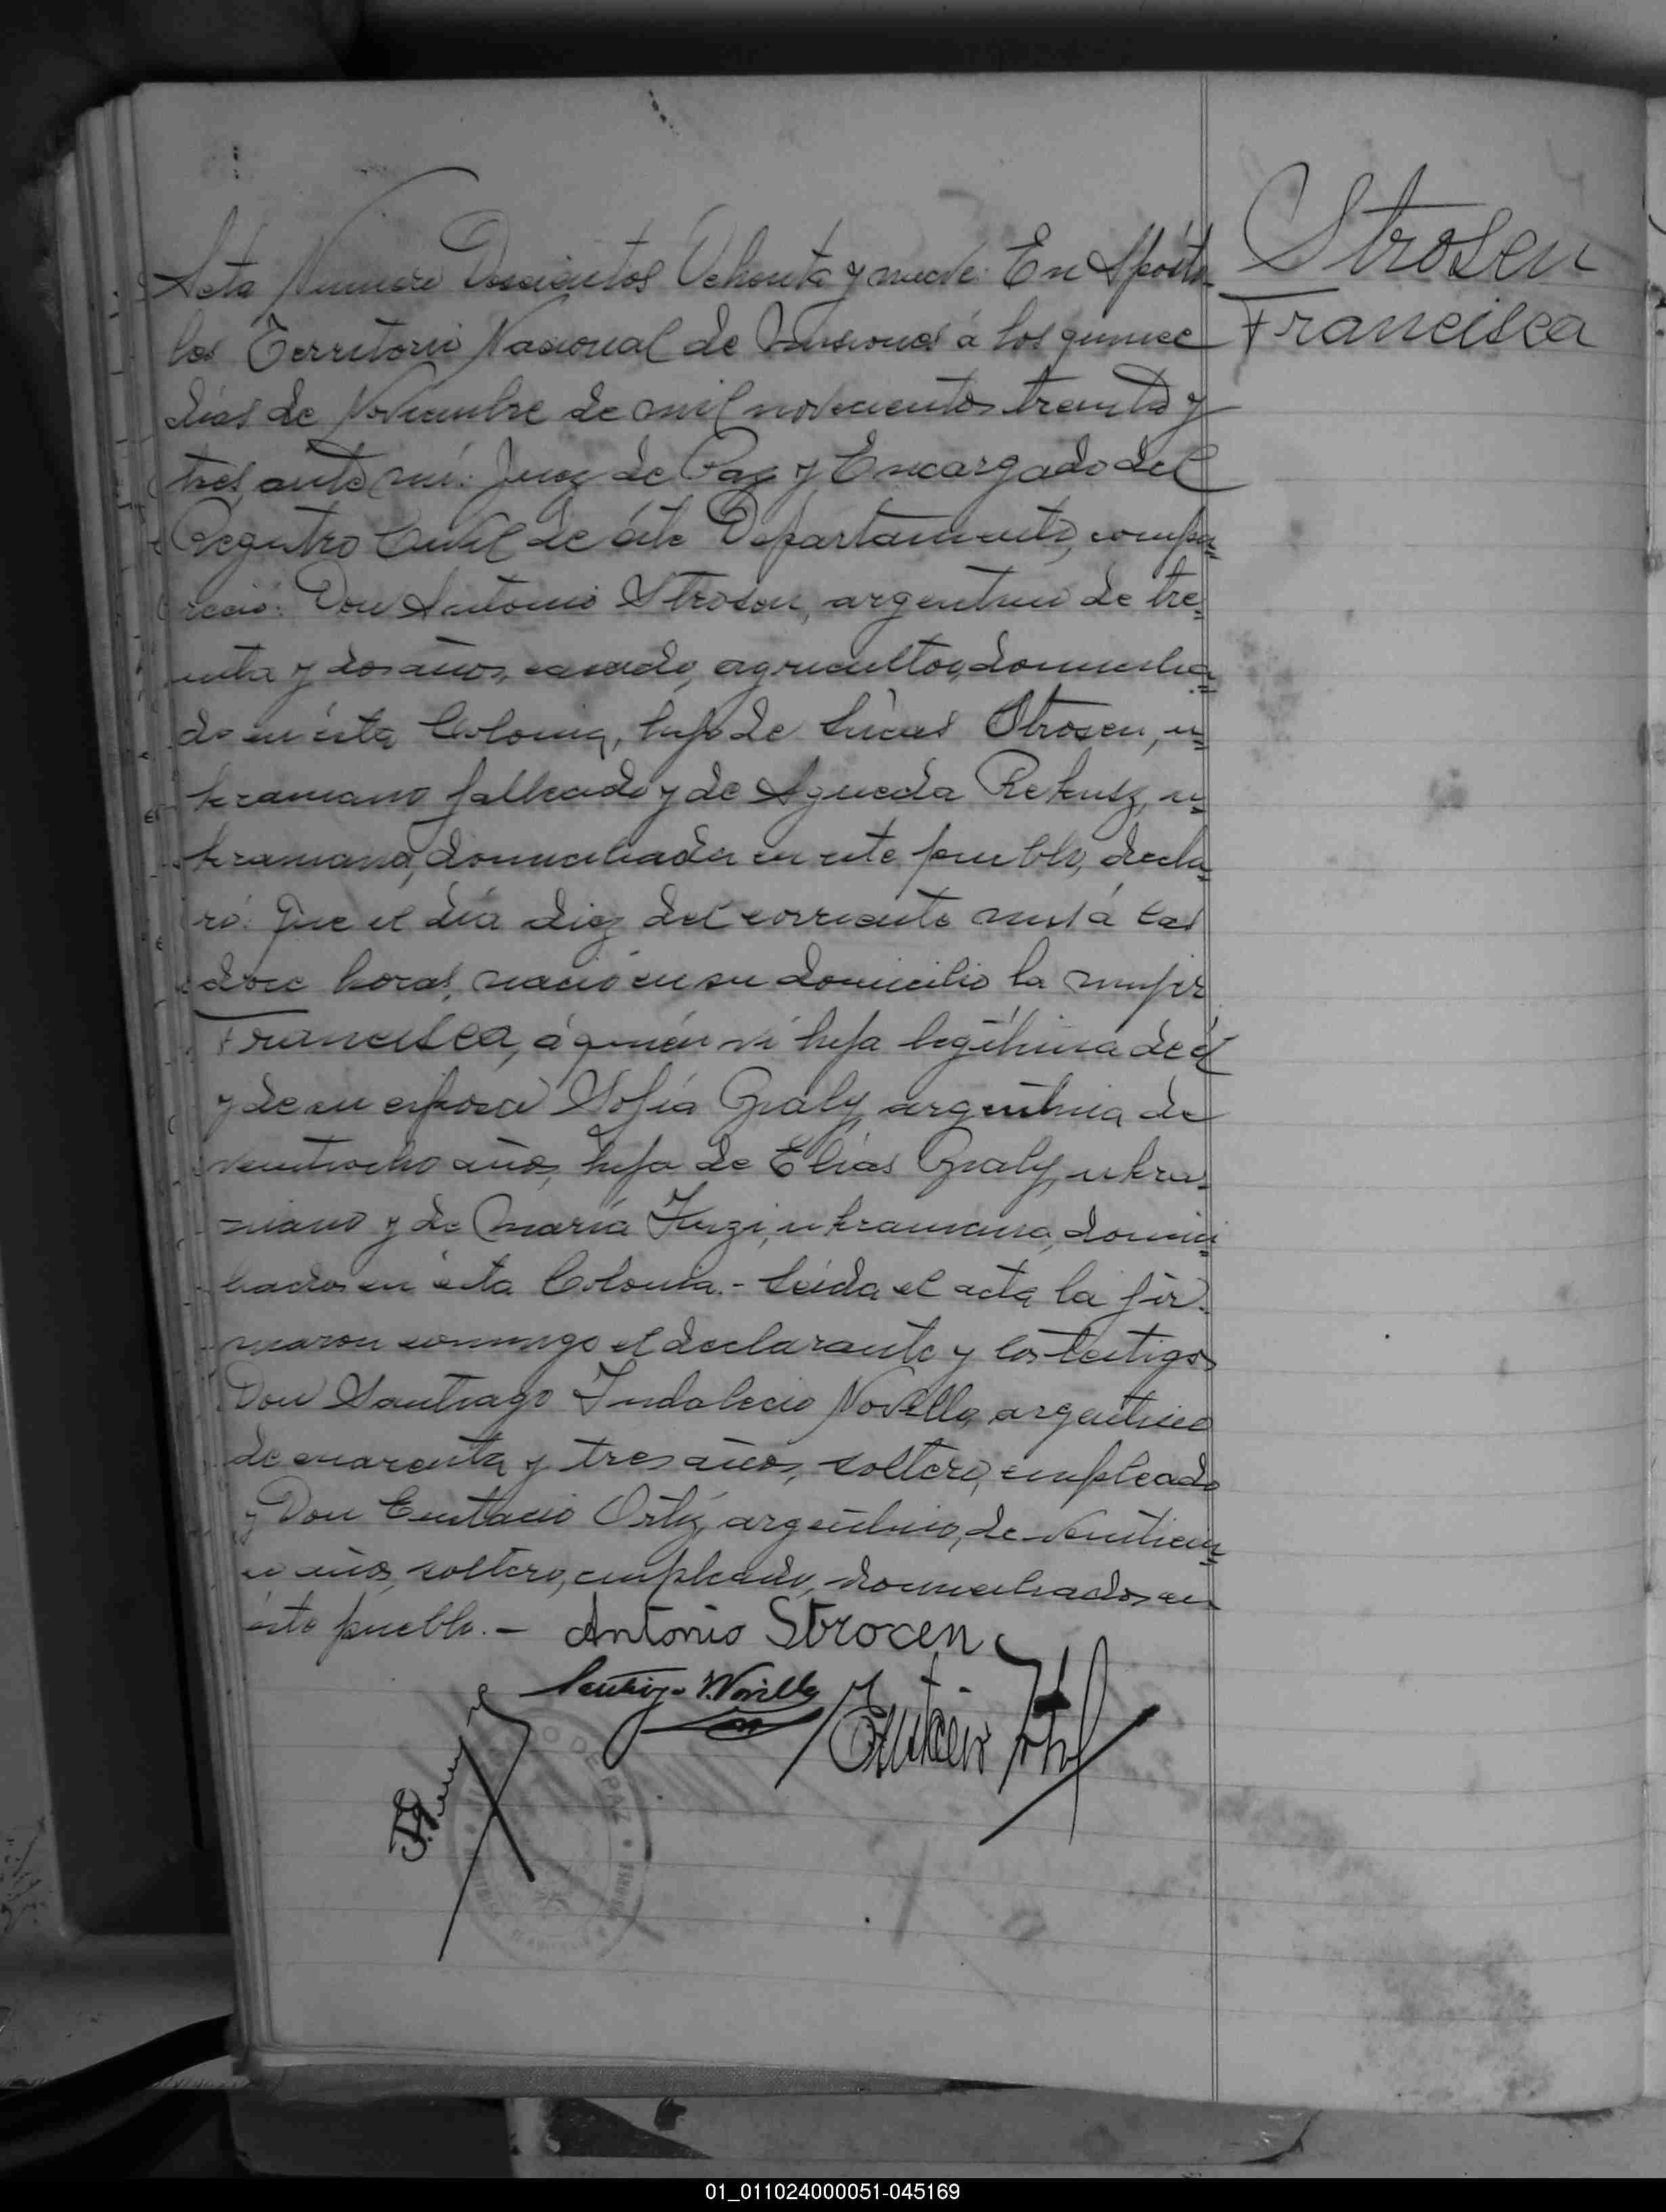 Strosen
Francisca
Acta Numero Doscientos Ochenta y nueve: En Aposto-
les Territorio Nacional de Misiones á los quince
días de Noviembre de mil novecientos treinta y
tres, ante mí: Juez de Paz y Encargado del
Registro Civil de éste Departamento, compa=
reció: Don Antonio Strosen, argentino de tre-
inta y dos años, casado, agricultor, domicilia=
do en ésta Colonia, hijo de Lúcas Strosen, u=
kraniano fallecido y de Agueda Rekusz, u=
kraniana, domiciliada en este pueblo, decla=
ró: Que el día diez del corriente mes á las
doce horas, nació en su domicilio la mujer
Francisca, á quién ví hija legítima de él
y de su esposa Sofía Graly, argentina de
veintiocho años, hija de Elías Graly, ukra-
niano y de María Jurgi, ukraniana, domici=
liados en ésta Colonia.- Leída el acta la fir-
maron conmigo el declarante y los testigos
Don Santiago Indalecio Novillo, argentino
de cuarenta y tres años, soltero, empleado
y Don Eustacio Ortíz, argentino, de veintiun=
o años, soltero, empleado, domiciliados en
éste pueblo.- Antonio Strocen
Santiago I. Novillo
Eustacio
DE PAZ